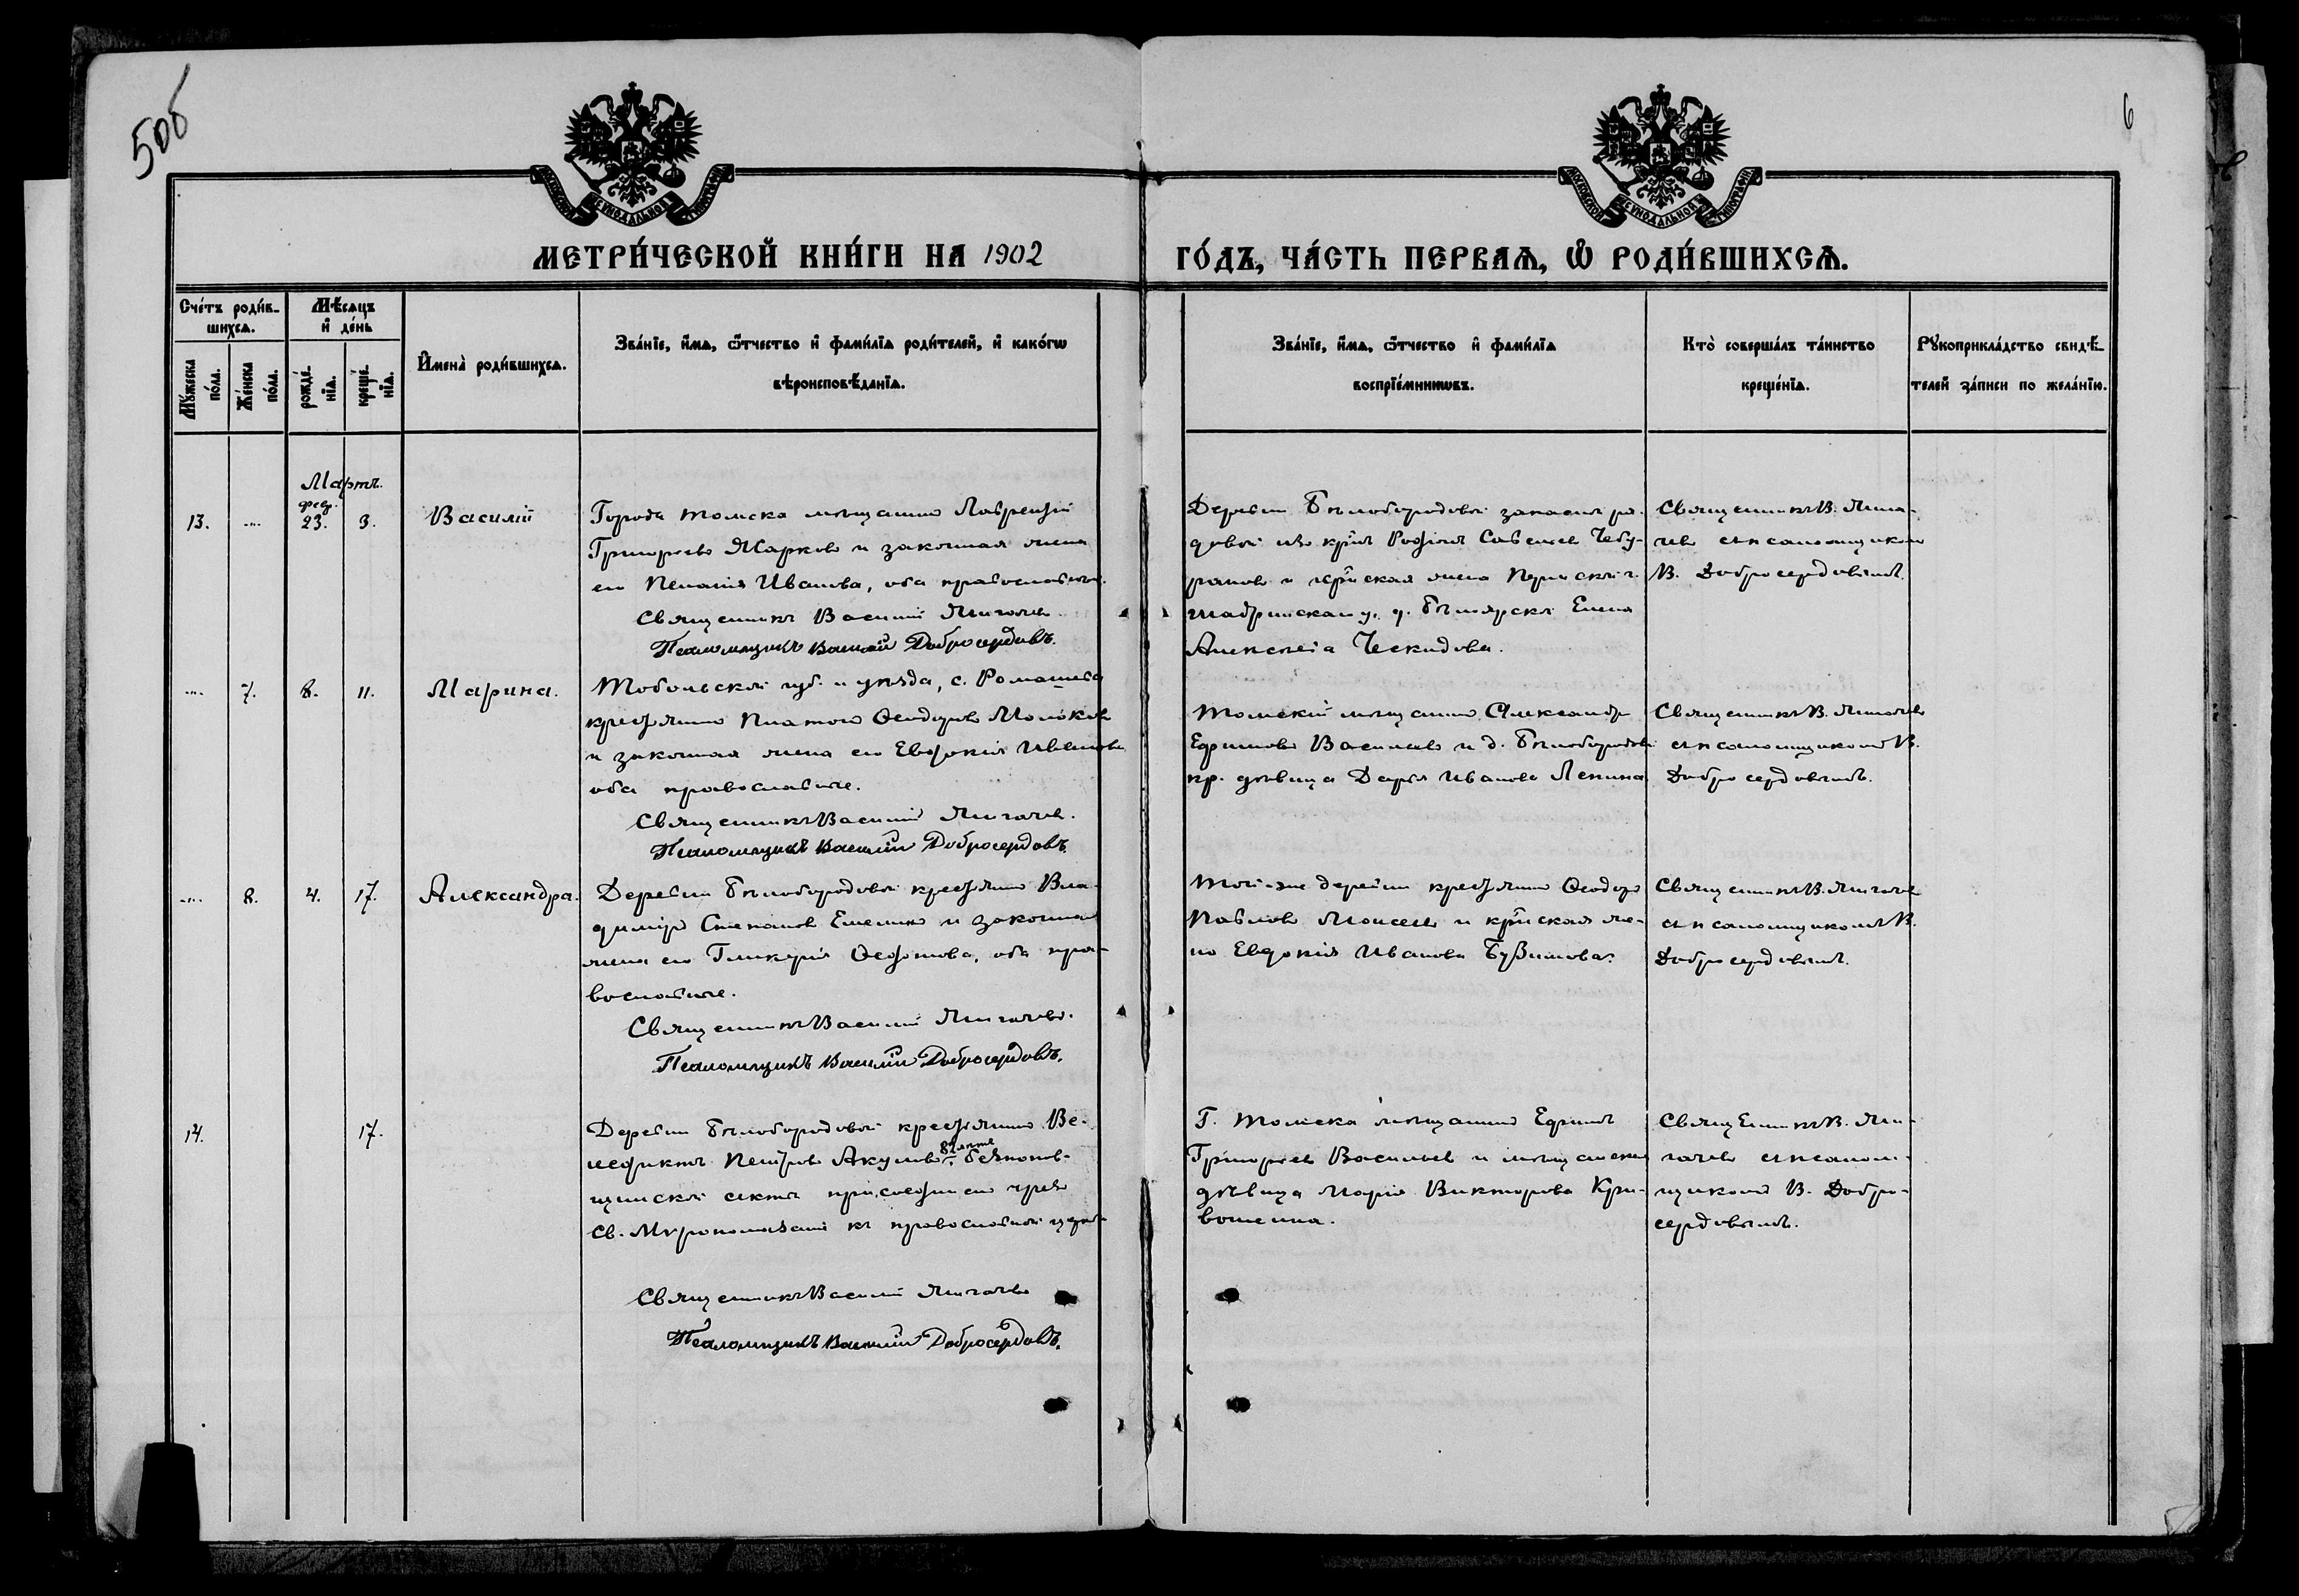 506
6
МОСКОВСКОЙ СУНОДАЛЬНОЙ ТИПОГРАФІИ
МОСКОВСКОЙ СУНОДАЛЬНОЙ ТИПОГРАФІИ
МЕТРИ́ЧЕСКОЙ КНИ́ГИ НА 1902
ГО́ДЪ, ЧА́СТЬ ПЕРВАѦ, Ѡ РОДИ́ВШИХСѦ.
Сче́тъ роди́в-
шихсѧ.
Мѣ́сѧцъ
и҆ де́нь
Мꙋ́жеска по́ла.
Же́нска по́ла.
рожде́нїѧ.
креще́нїѧ.
И҆мена̀ роди́вшихсѧ.
Зва́нїе, и҆́мѧ, ѻ҆́тчество и҆ фами́лїѧ роди́телей, и҆ како́гѡ
вѣроисповѣ́данїѧ.
Зва́нїе, и҆́мѧ, ѻ҆́тчество и҆ фами́лїѧ
воспрїе́мникѡвъ.
Кто̀ соверша́лъ та́инство
креще́нїѧ.
Рꙋкоприкла́дство свидѣ́-
телей за́писи по жела́нїю.
Мартъ.
февр.
13. 23. 3. Василій
Города Томска мѣщанинъ Лаврентій
Григорьевъ Марковъ и законная жена
его Пелагія Иванова, оба православные.
Священникъ Василій Лигачевъ
Псаломщикъ Василій Добросердовъ.
Деревни Бѣлобородовой запасный ря-
довой изъ кр. Савельевъ
и жена Пермской г.
Шадринскаго у. Елена
Алексѣева Ческидова.
Священникъ В. Лига-
чевъ съ псаломщикомъ
В. Добросердовымъ.
7. 8. 11. Марина.
Тобольской губ. и уѣзда, с. Ромашева
крестьянинъ Платонъ Ѳеодоровъ Молоковъ
и законная жена его Евдокія Иванова
оба православные.
Священникъ Василій Лигачевъ.
Псаломщикъ Василій Добросердовъ.
Томскій мѣщанинъ Александръ
Ефимовъ Васильевъ и д. Бѣлобородовой
кр. дѣвица Дарья Иванова Лепина
Священникъ В. Лигачевъ
съ псаломщикомъ В.
Добросердовымъ.
8. 4. 17. Александра.
Деревни Бѣлобородовой крестьянинъ Вла-
диміръ Степановъ Емелинъ и законная
жена его Гликерія Ѳеодотова, оба пра-
вославные.
Священникъ Василій Лигачевъ.
Псаломщикъ Василій Добросердовъ.
Той-же деревни крестьянинъ Ѳеодоръ
Павловъ Моисеевъ и кр-ская же-
на Евдокія Иванова Бузимова.
Священникъ В. Лигачевъ
съ псаломщикомъ В.
Добросердовымъ.
14. 17.
Деревни Бѣлобородовой крестьянинъ Ве-
недиктъ Петровъ Акуловъ 82 лѣтъ безпопов-
щинской секты присоединенъ чрез
св. Мѵропомазаніе къ православной церкви
Священникъ Василій Лигачевъ
Псаломщикъ Василій Добросердовъ.
Г. Томска мѣщанинъ Ефимъ
Григорьевъ Васильевъ и мѣщанская
дѣвица Марія Викторова Кри-
вошеина.
Священникъ В. Ли-
гачевъ съ псалом-
щикомъ В. Добро-
сердовымъ.